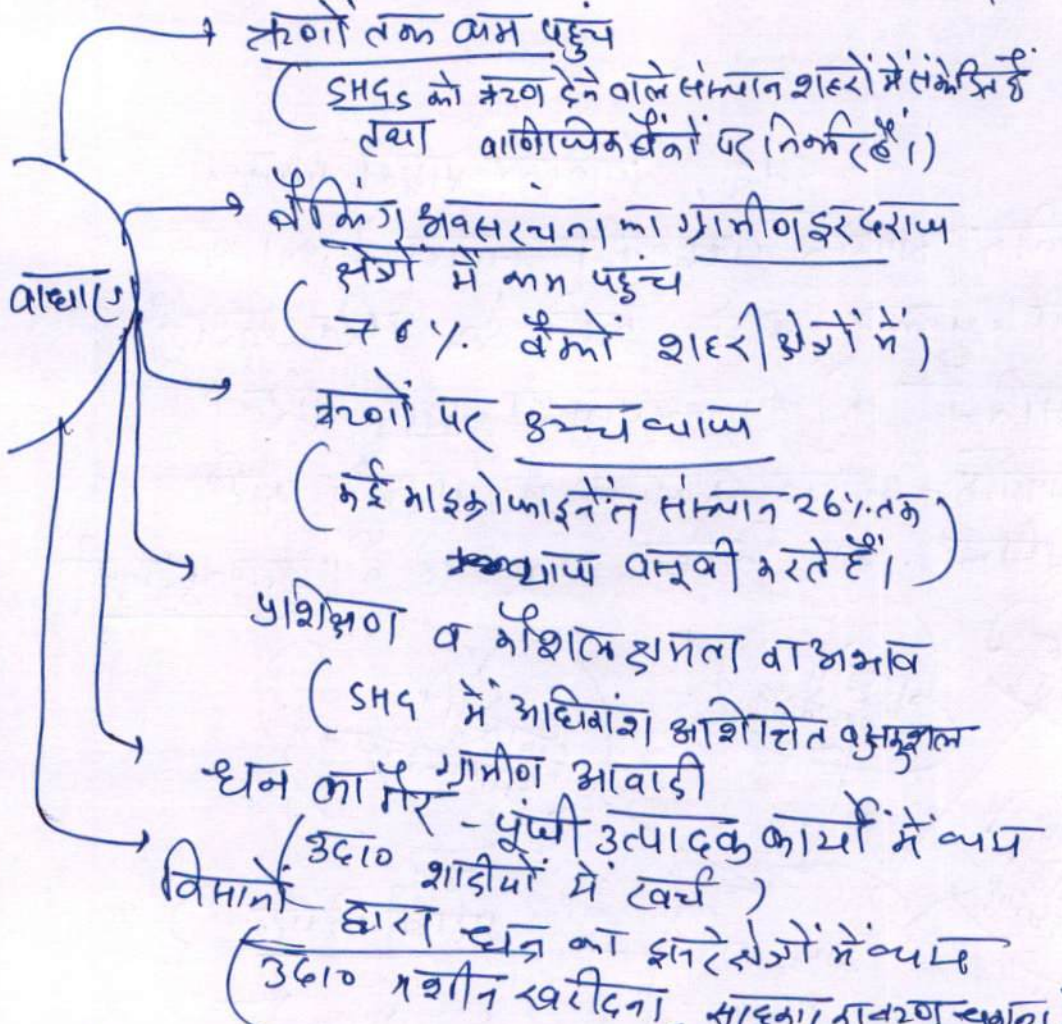 ऋणों तक कम पहुंच
( SHGs को ऋण देने वाले संस्थान शहरों में संकेद्रित है
तथा वाणिज्यिक बैंकों पर निर्भर हैं।)
बाधाएं
बैंकिंग अवसरंचना का ग्रामीण इर दराज
क्षेत्रों में कम पहुंच
( 76%. बैंको शहरी क्षेत्रों में )
ऋणों पर उच्च ब्याज
( कई माइक्रोफाइनेंस संस्थान 26%. तक
ब्याज वसूली करते हैं। )
प्रशिक्षण व कौशल क्षमता का अभाव
( SHG में अधिकांश अशिक्षित व अकुशल
ग्रामीण आबादी
धन का गैर - पूंजी उत्पादक कार्यों में व्यय
( उदा० शादीयों में खर्च )
किसानों द्वारा धन का इतर क्षेत्रों में व्यय
( उदा० मशीन खरीदना